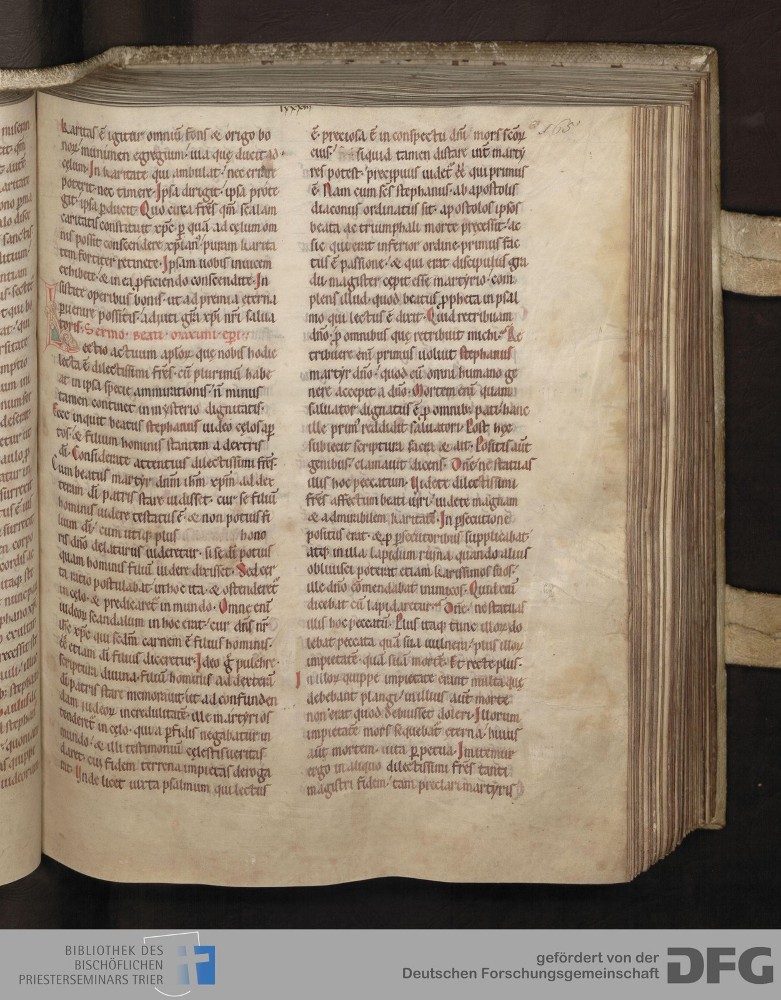 lxxxiii
165
karitas ē igitur omniū fons & origo bo
norū munimen egregium· uia que ducit ad
celum· In karitate qui ambulat· nec errare
poterit· nec timere· Ipsa dirigit· ipsa prote
git· ipsa ꝑducit· Quo circa frēs qm̄ scalam
caritatis constituit xp̄c· ꝑ quā ad celum om
nis possit conscendere xp̄ian'· puram karita
tem fortiter retinete· Ipsam uobis inuicem
exhibete· & in ea ꝓficiendo conscendite· In
sistite operibus bonis· ut ad premia eterna
ꝑuenire possitis· adiuti gr̄a xp̄i nr̄i salua
toris· Sermo· beati· maximi· ep̄i·
Lectio actuum aplōꝝ que nobis hodie
lecta ē dilectissimi frēs· cū plurimū habe
at in ipsa specie ammirationis· n̄ minus
tamen continet in mysterio dignitatis·
Ecce inquit beatus stephanus uideo celos aꝑ
tos· & filium hominis stantem a dextris
dī· Considerate attentius dilectissimi frēs·
Cum beatus martyr dnm̄ ihm̄ xpm̄ ad dex
teram dī patris stare uidisset· cur se filiū
hominis uidere testatus ē· & non potius fi
lium dī· cum utiq; plus hono
ris dnō delaturus uideretur· si se dī potius
quam hominis filiū uidere dixisset· Sed cer
ta ratio postulabat· ut hoc ita· & ostenderet̄
in celo· & predicaret̄ in mundo· Omne enī
iudeoꝝ scandalum in hoc erat· cur dn̄s nr̄
ihc̄ xp̄c qui scdm̄ carnem ē filius hominis·
ēē etiam dī filius diceretur· Ideo ḡ pulchre·
scriptura diuina· filiū hominis ad dexterā
dī patris stare memorauit· ut ad confunden
dam iudeoꝝ incredulitatē· ille martyri os
tenderet̄ in celo· qui a ꝑfidis negabatur in
mundo· & illi testimoniū celestis ueritas
daret· cui fidem terrena impietas deroga
rat· Unde licet iuxta psalmum qui lectus
ē· preciosa ē in conspectu dnī mors scōꝝ
eius· si quid tamen distare int̄ marty
res potest· precipuus uidet̄ ēē qui primus
ē· Nam cum scs̄ stephanus· ab apostolis
diaconus ordinatus sit· apostolos ipsos
beata ac triumphali morte precessit· ac
sic qui erat inferior ordine· primus fac
tus ē passione· & qui erat discipulus gra
du· magister cepit esse martyrio· com
plens illud· quod beatus ꝓpheta in psal
mo qui lectus ē dixit· Quid retribuam
dnō· ꝓ omnibus que retribuit michi· Re
tribuere enī primus uoluit stephanus
martyr dnō· quod cū omni humano ge
nere accepit a dnō· Mortem enī quam
saluator dignatus ē ꝓ omnib; pati· hanc
ille prim' reddidit saluatori· Post hec
subiecit scriptura sacra & ait· Positis aut̄
genibus· clamauit dicens· Dnē· ne statuas
illis hoc peccatum· Uidete dilectissimi
frēs affectum beati uiri· uidete magnam
& admirabilem karitatē· In ꝑsecutione
positus erat· & ꝓ ꝑsecutoribus supplicabat·
atq; in illa lapidum ruina· quando alius
obliuisci poterat etiam karissimos suos·
ille dnō cōmendabat inimicos· Quid enī
dicebat cū lapidaretur· Dnē· ne statuas
illis hoc peccatū· Plus itaq; tunc illoꝝ do
lebat peccata quā sua uulnera· plus illoꝝ
impietatē· quā suā mortē· Et recte plus·
In illoꝝ quippe impietate erant multa que
debebant plangi· in illius aut̄ morte
non erat quod debuisset doleri· Illorum
impietatē mors sequebat̄ eterna· huius
aut̄ mortem· uita ꝑpetua· Imitemur
ergo in aliquo dilectissimi frēs tanti
magistri fidem· tam preclari martyris
BIBLIOTHEK DES
BISCHÖFLICHEN
PRIESTERSEMINARS TRIER
gefördert von der
Deutschen Forschungsgemeinschaft
DFG